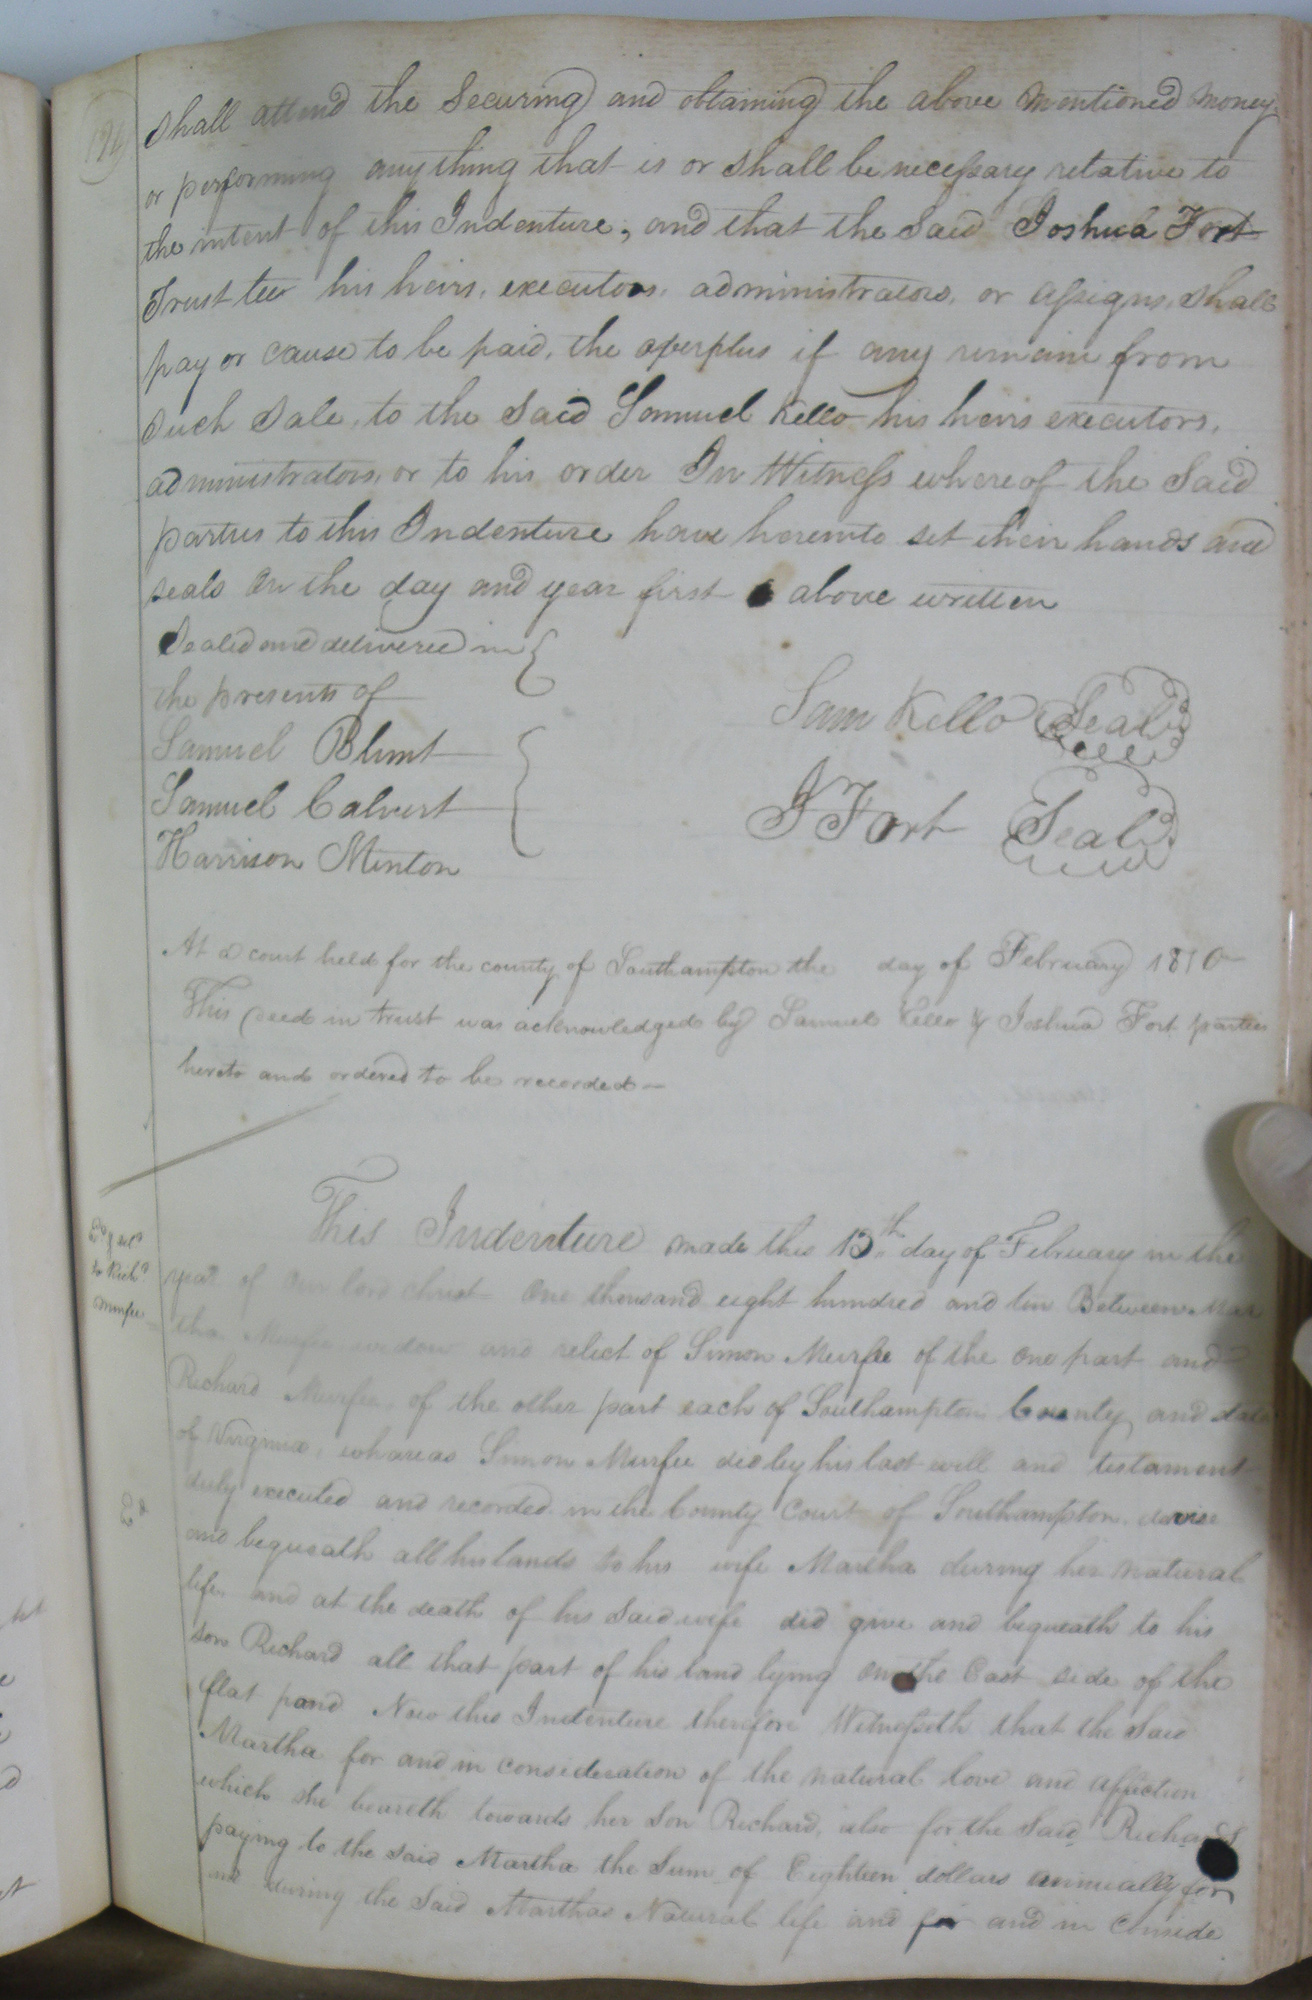 shall attend the Securing and obtaining the above mentioned money
or performing any thing that is or shall be necessary relative to
the intent of this Indenture, and that the Said Joshua Fort
Trust tee his heirs, executors, administrators, or assigns, shall
pay or cause to be paid, the overplus if any remain from
such Sale, to the Said Samuel Kello his heirs executors,
administrators, or to his order In Witness whereof the Said
parties to this Indenture have hereunto set their hands and
seals on the day and year first above written
Sealed and delivered in
the presents of
Sam Kello Seal
Samuel Blunt
Samuel Calvert
J Fort Seal
Harrison Minton
At a court held for the county of Southampton the day of February 1810
This deed in trust was acknowledged by Samuel Kello & Joshua Fort parties
hereto and ordered to be recorded
This Indenture made this 13th day of February in the
year of our lord christ One thousand eight hundred and ten Between Mar
tha Murfee widow and relict of Simon Murfee of the one part and
to Richd
Murfee
Richard Murfee of the other part each of Southampton County and State
of Virginia, whareas Simon Murfee did by his last will and testament
duly executed and recorded in the County Court of Southampton devise
and bequeath all his lands to his wife Martha during her natural
life and at the death of his Said wife did give and bequeath to his
son Richard all that part of his land lying on the East side of the
flat pond Now this Indenture therefore Witnesseth that the Said
Martha for and in consideration of the natural love and affection
which she beareth towards her Son Richard, also for the Said Richards
paying to the said Martha the Sum of Eighteen dollars annually for
and during the Said Marthas Natural life and for and in Conside